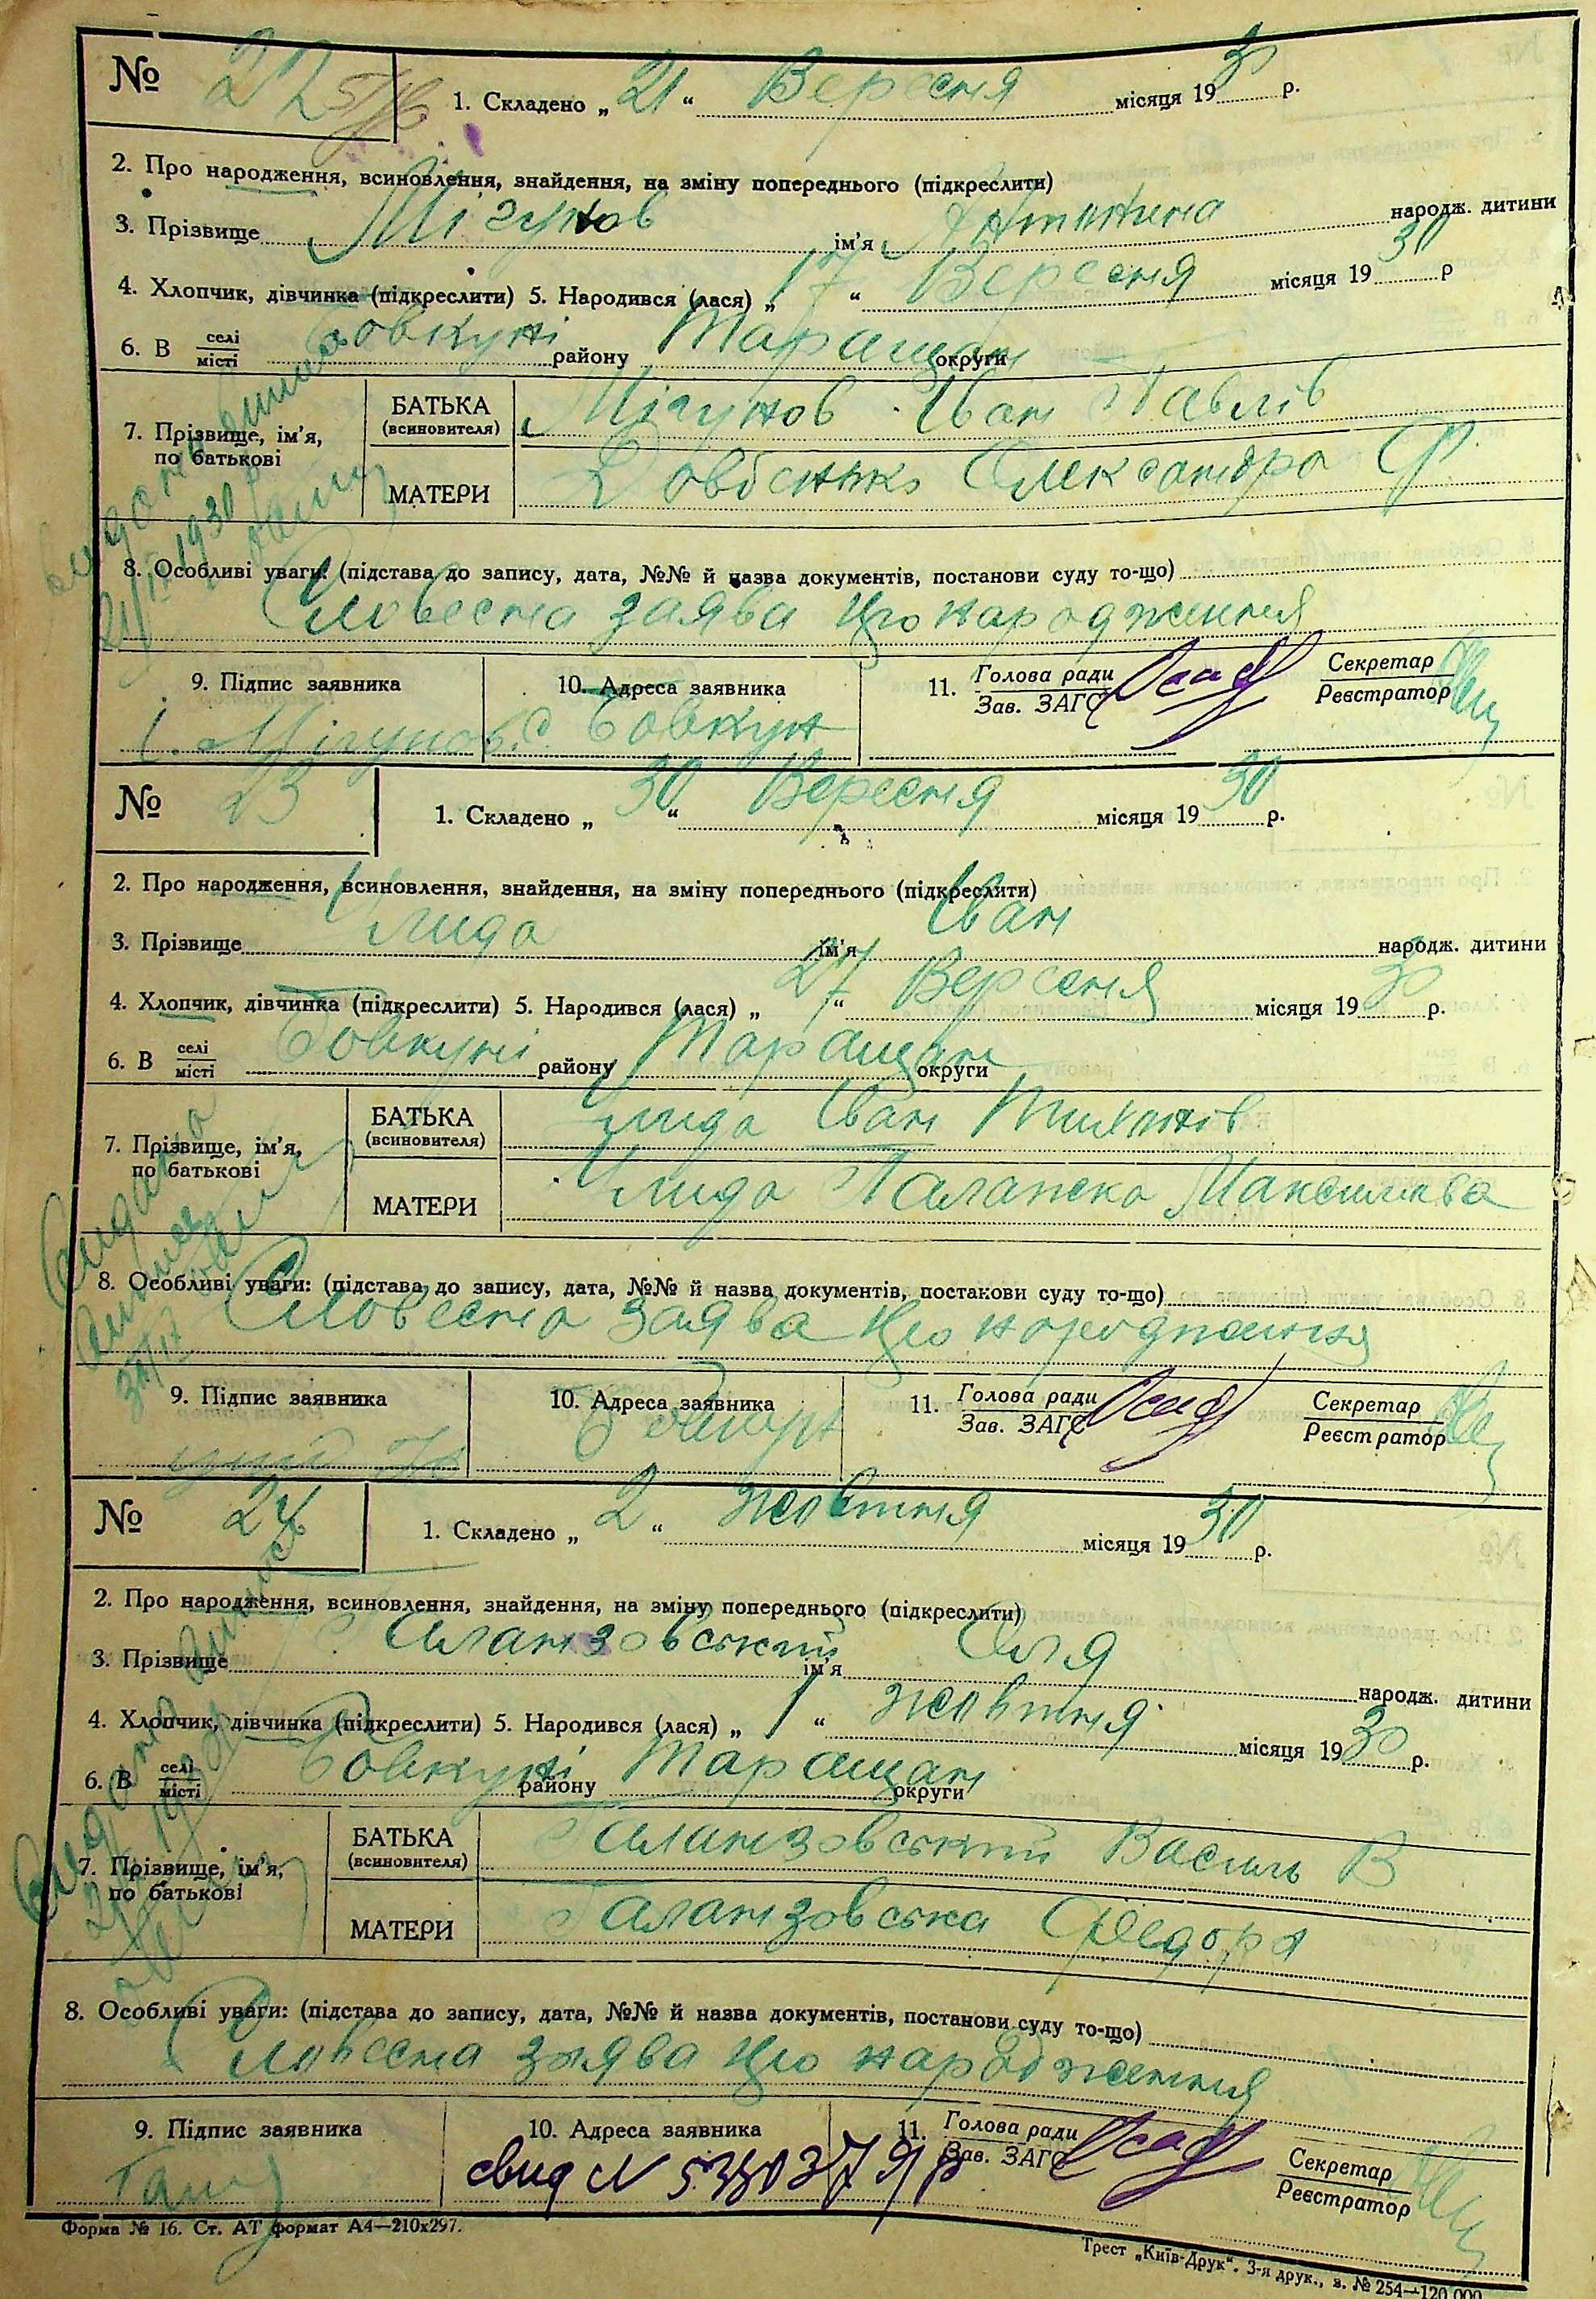 № 22 1. Складено „ 21 “ Вересня місяця 19 30 р.
2. Про народження, всиновлення, знайдення, на зміну попереднього (підкреслити)
3. Прізвище Мігунов ім'я Антонина народж. дитини
4. Хлопчик, дівчинка (підкреслити) 5. Народився (лася) „ 17 “ Вересня місяця 19 30 р
6. В селі місті Бовкуні району Таращан округи
7. Прізвище, ім'я, по батькові
БАТЬКА (всиновителя) Мігунов Іван Павлів
МАТЕРИ Довбенко Олександра Ф.
8. Особливі уваги: (підстава до запису, дата, №№ й назва документів, постанови суду то-що)
Словесна заява про народження
9. Підпис заявника 10. Адреса заявника 11. Голова ради Зав. ЗАГС Секретар Реєстратор
І. Мігунов с. Бовкун
№ 23 1. Складено „ 30 “ Вересня місяця 19 30 р.
2. Про народження, всиновлення, знайдення, на зміну попереднього (підкреслити)
3. Прізвище ім'я Іван народж. дитини
4. Хлопчик, дівчинка (підкреслити) 5. Народився (лася) „ 27 “ Вересня місяця 19 30 р.
6. В селі місті Бовкуні району Таращан округи
7. Прізвище, ім'я, по батькові
БАТЬКА (всиновителя) Іван
МАТЕРИ Палажка Максимова
8. Особливі уваги: (підстава до запису, дата, №№ й назва документів, постакови суду то-що)
Словесна заява про народження
9. Підпис заявника 10. Адреса заявника 11. Голова ради Зав. ЗАГС Секретар Реєстратор
Бовкун
№ 24 1. Складено „ 2 “ жовтня місяця 19 30 р.
2. Про народження, всиновлення, знайдення, на зміну попереднього (підкреслити)
3. Прізвище Галанзовський ім'я Оля народж. дитини
4. Хлопчик, дівчинка (підкреслити) 5. Народився (лася) „ 1 “ жовтня місяця 19 30 р.
6. В селі місті Бовкуні району Таращан округи
7. Прізвище, ім'я, по батькові
БАТЬКА (всиновителя) Галанзовський Василь В
МАТЕРИ Галанзовська Федора
8. Особливі уваги: (підстава до запису, дата, №№ й назва документів, постанови суду то-що)
Словесна заява про народження
9. Підпис заявника 10. Адреса заявника 11. Голова ради Зав. ЗАГС Секретар Реєстратор
Форма № 16. Ст. АТ формат А4—210x297.
Трест „Київ-Друк“. 3-я друк., з. № 254—120.000